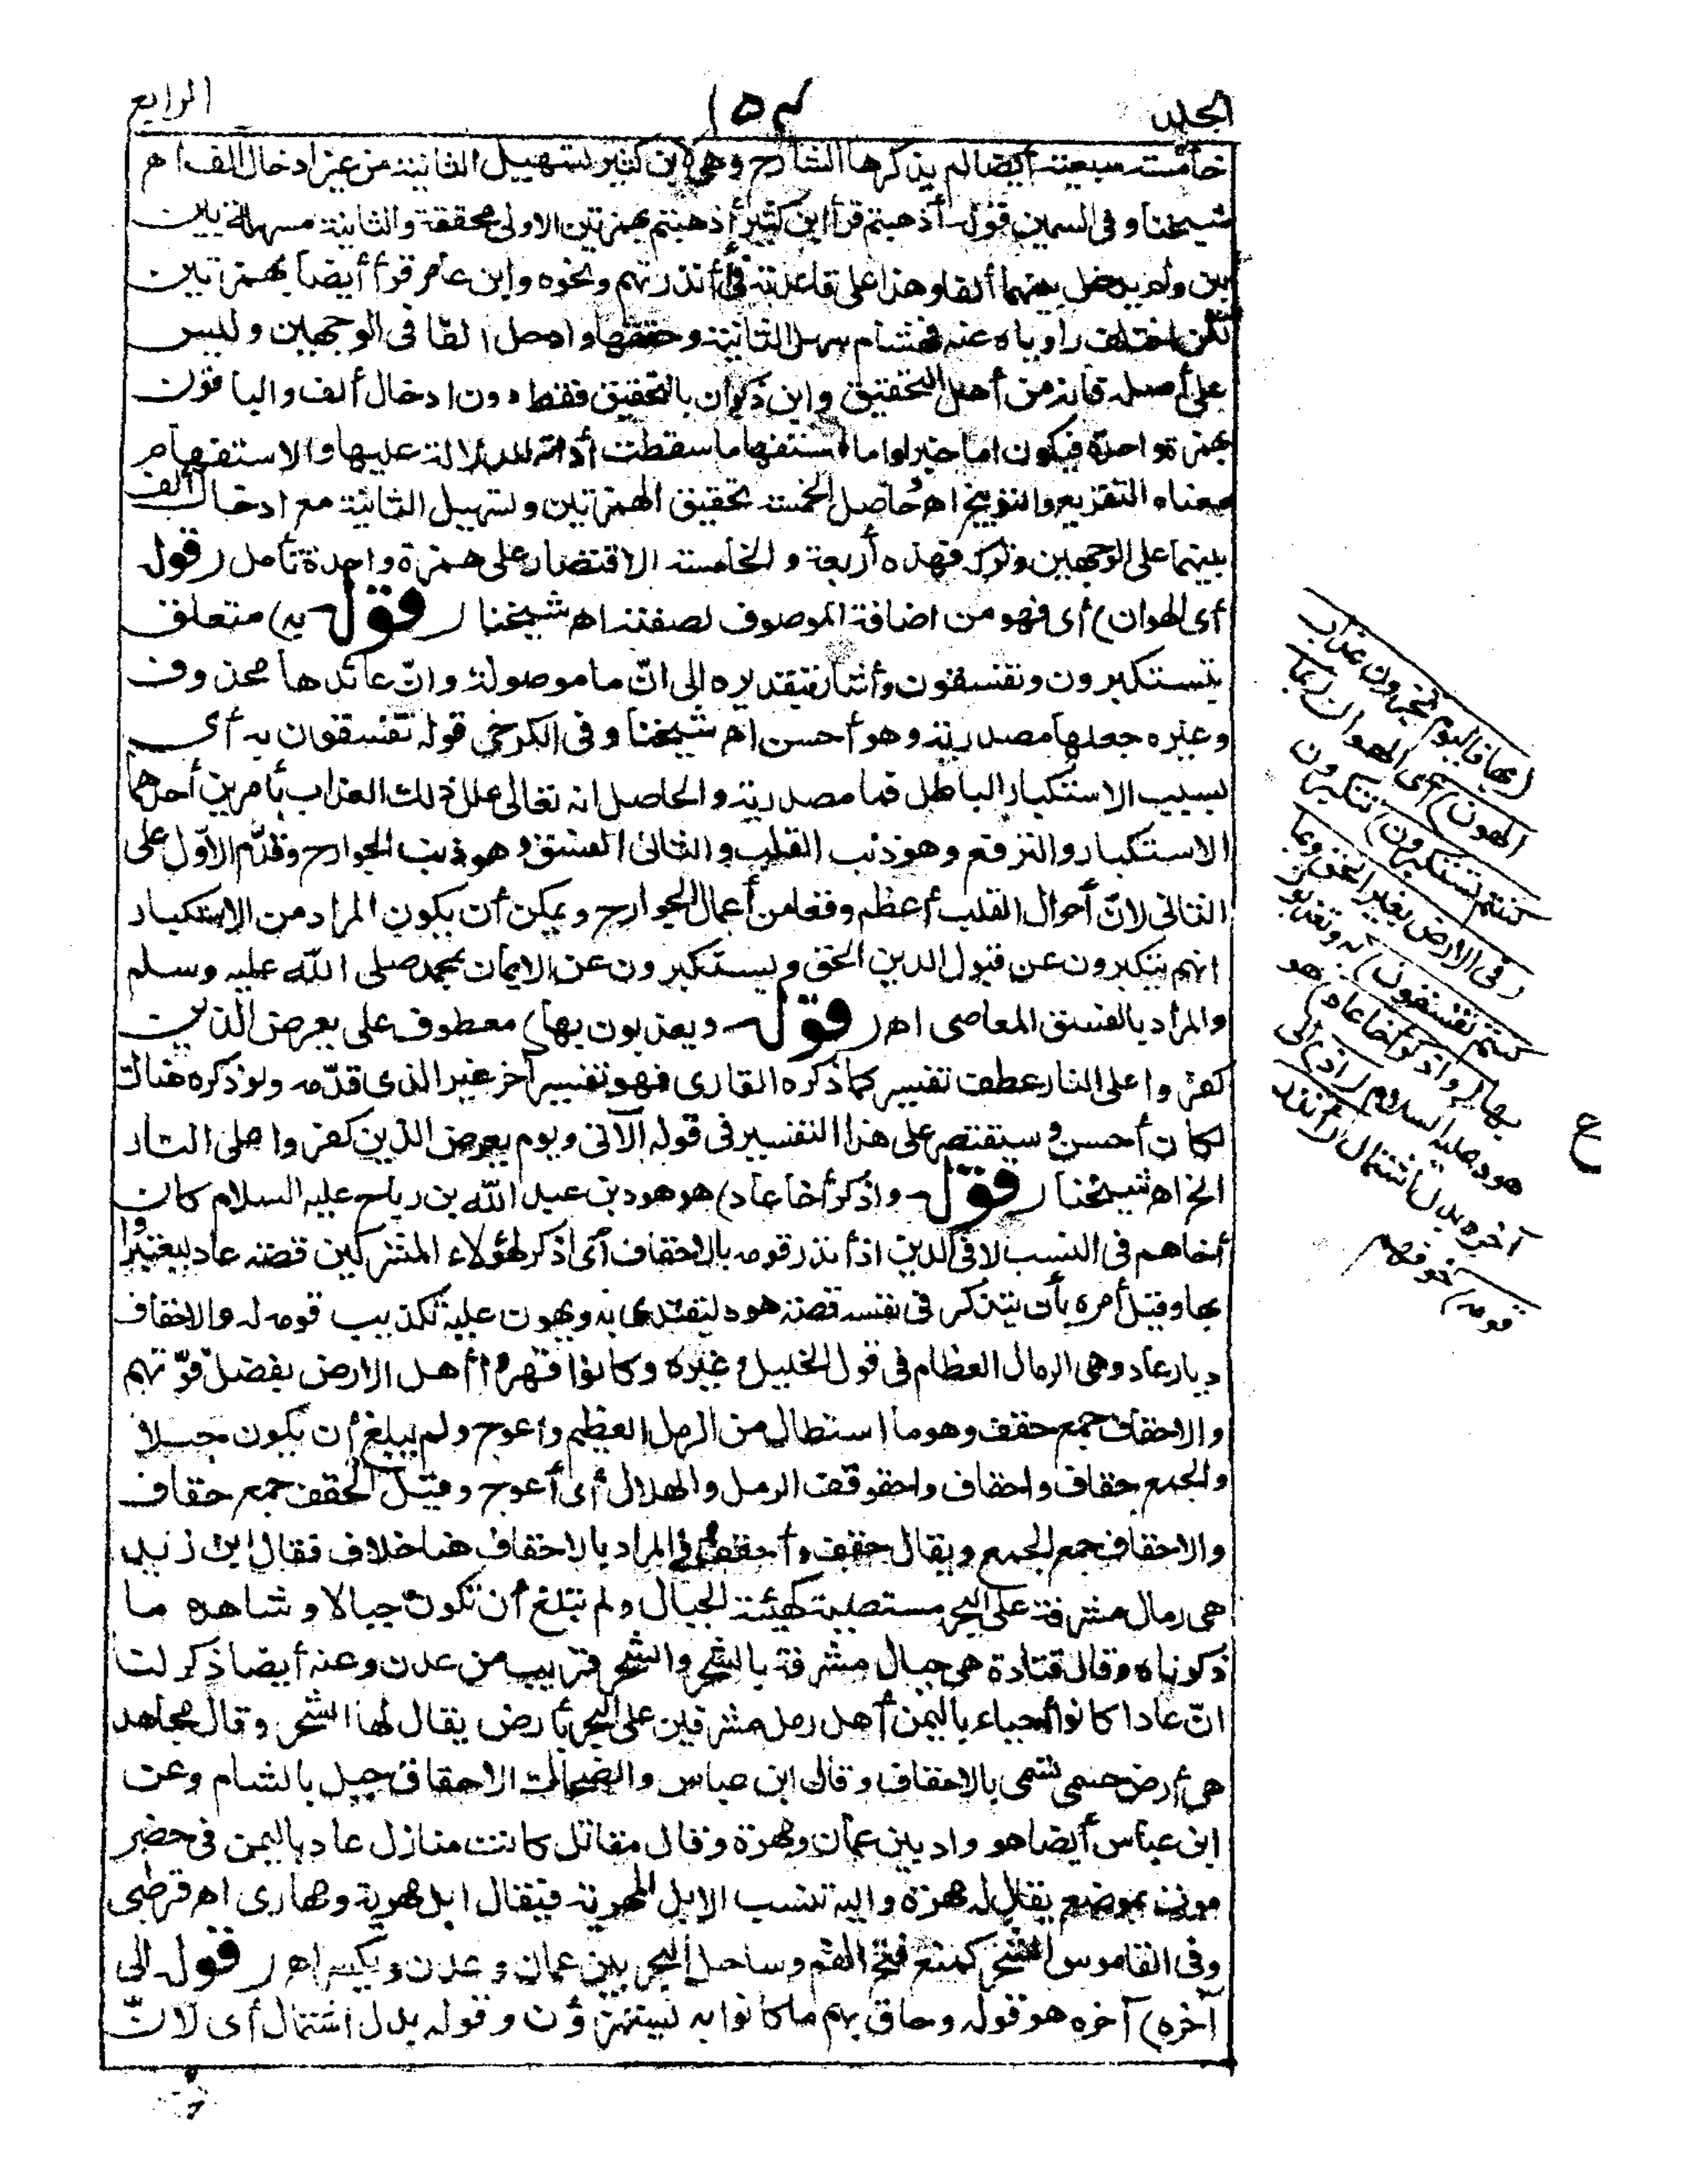 المجلد
١٥٣
الرابع
خامسة سبعية أيضا لم يذكرها الشارح وهي لابن كثير تسهيل الثانية من غير ادخال ألف اه
شيخنا وفى السمين قوله أذهبتم قرأ ابن كثير أأذهبتم بهمزتين الاولى محققة والثانية مسهلة بين
بين ولم يدخل بينهما ألفا وهذا على قاعدته فى أأنذرتهم ونحوه وابن عامر قرأ أيضا بهمزتين
لكن اختلف راوياه عنه فهشام سهل الثانية وحققها وادخل ألفا فى الوجهين وليس
على أصله فانه من أهل التحقيق وابن ذكوان بالتحقيق فقط دون ادخال ألف والباقون
بهمزة واحدة فيكون اما خبرا واما استفهاما سقطت أداته للدلالة عليها والاستفهام
معناه التقريع والتوبيخ اه وحاصل الخمسة تحقيق الهمزتين وتسهيل الثانية مع ادخال ألف
بينهما على الوجهين وتركه فهذه أربعة والخامسة الاقتصار على همزة واحدة تأمل (قوله
أى الهوان) أى فهو من اضافة الموصوف لصفته اه شيخنا (قوله به) متعلق
بتستكبرون وتفسقون وأشار بتقديره الى انّ ما موصولة وانّ عائدها محذوف
وغيره جعلها مصدرية وهو أحسن اه شيخنا وفى الكرخى قوله تفسقون به أى
بسبب الاستكبار الباطل فما مصدرية والحاصل انه تعالى علل ذلك العذاب بأمرين أحدهما
الاستكبار والترفع وهو ذنب القلب والثانى الفسق وهو ذنب الجوارح وقدّم الاوّل على
الثانى لانّ أحوال القلب أعظم وقعا من أعمال الجوارح ويمكن أن يكون المراد من الاستكبار
انهم يتكبرون عن قبول الدين الحق ويستكبرون عن الايمان بمحمد صلى الله عليه وسلم
والمراد بالفسق المعاصى اه (قوله ويعذبون بها) معطوف على يعرض الذين
كفروا على النار عطف تفسير كما ذكره القارى فهو تفسير آخر غير الذى قدّمه ولو ذكره هناك
لكان أحسن وسيقتصر على هذا التفسير فى قوله الآتى ويوم يعرض الذين كفروا على النار
الخ اه شيخنا (قوله واذكر أخا عاد) هو هود بن عبد الله بن رباح عليه السلام كان
أخاهم فى النسب لا فى الدين اذ أنذر قومه بالاحقاف أى اذكر لهؤلاء المشركين قصة عاد ليعتبروا
بها وقيل أمره بأن يتذكر فى نفسه قصة هود ليقتدى به ويهون عليه تكذيب قومه له والاحقاف
ديار عاد وهى الرمال العظام فى قول الخليل وغيره وكانوا قهروا أهل الارض بفضل قوّتهم
والاحقاف جمع حقف وهو ما استطال من الرمل العظيم واعوج ولم يبلغ أن يكون جبلا
والجمع حقاف واحقاف واحقوقف الرمل والهلال أى أعوج وقيل الحقف جمع حقاف
والاحقاف جمع الجمع ويقال حقف وأحقف وفى المراد بالاحقاف هنا خلاف فقال ابن زيد
هى رمال مشرفة على البحر مستطيلة كهيئة الجبال ولم تبلغ أن تكون جبالا وشاهده ما
ذكرناه وقال قتادة هى جبال مشرفة بالشحر والشحر قريب من عدن وعنه أيضا ذكر لنا
انّ عادا كانوا أحياء باليمن أهل رمل مشرفين على البحر بأرض يقال لها الشحر وقال مجاهد
هى أرض حسمى تسمى بالاحقاف وقال ابن عباس والضحاك الاحقاف جبل بالشام وعن
ابن عباس أيضا هو واد بين عمان ومهرة وقال مقاتل كانت منازل عاد باليمن فى حضر
موت بموضع يقال له مهرة واليه تنسب الابل المهرية فيقال ابل مهرية ومهارى اه قرطبى
وفى القاموس الشحر كمنع فتح الفم وساحل البحر بين عمان وعدن ويكسر اه (قوله الى
آخره) آخره هو قوله وحاق بهم ما كانوا به يستهزؤن وقوله بدل اشتمال أى لانّ
(بها فاليوم تجزون عذاب
الهون) أى الهوان (بما
كنتم تستكبرون) تتكبرون
(فى الارض بغير الحق وبما
كنتم تفسقون) به وتعذبون
بها (واذكر أخا عاد) هو
هود عليه السلام (اذ) الى
آخره بدل اشتمال (أنذر
قومه) خوفهم
ع